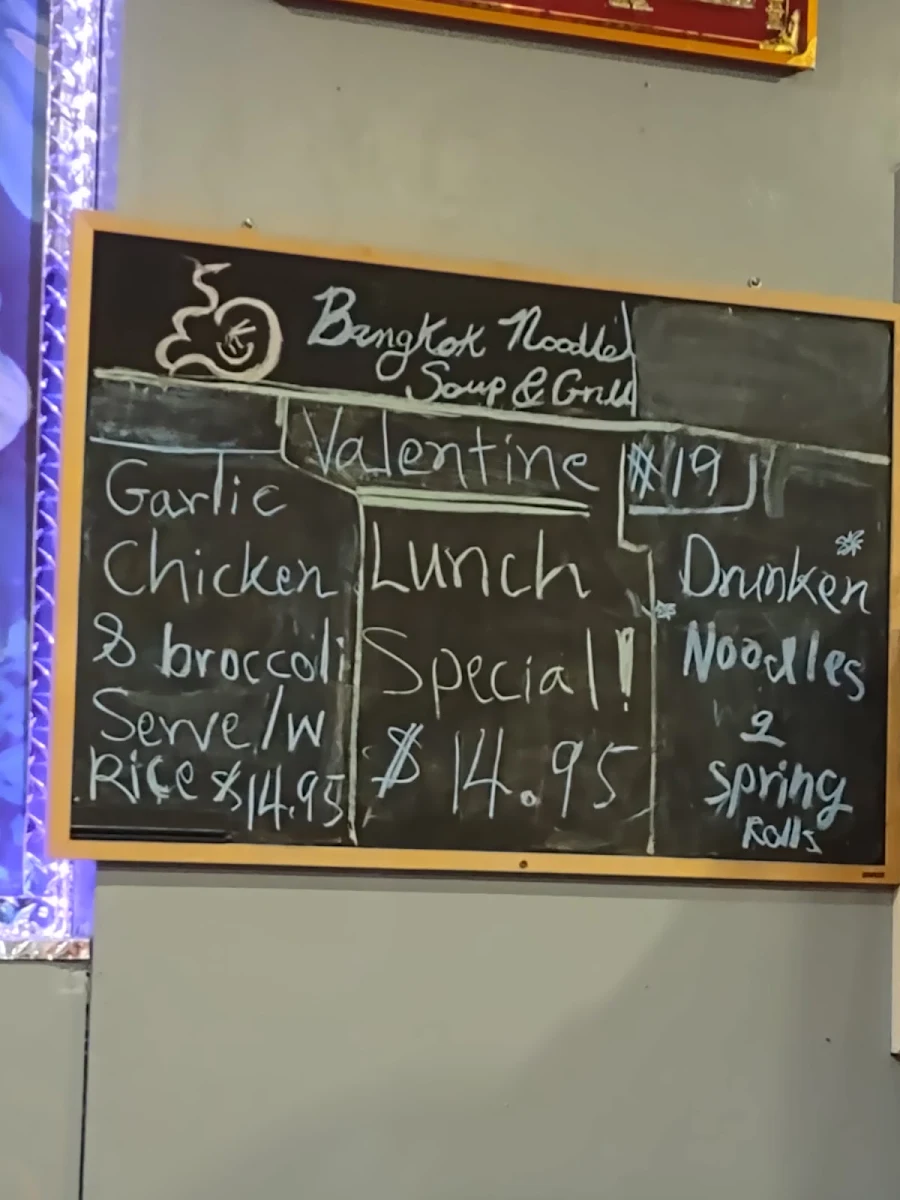 Bangkok Noodle
Soup & Grill
Valentine
$19
Garlic
Chicken
& broccoli
Serve/w
Rice $14.95
Lunch
Special!
$14.95
Drunken
Noodles
2
Spring
Rolls